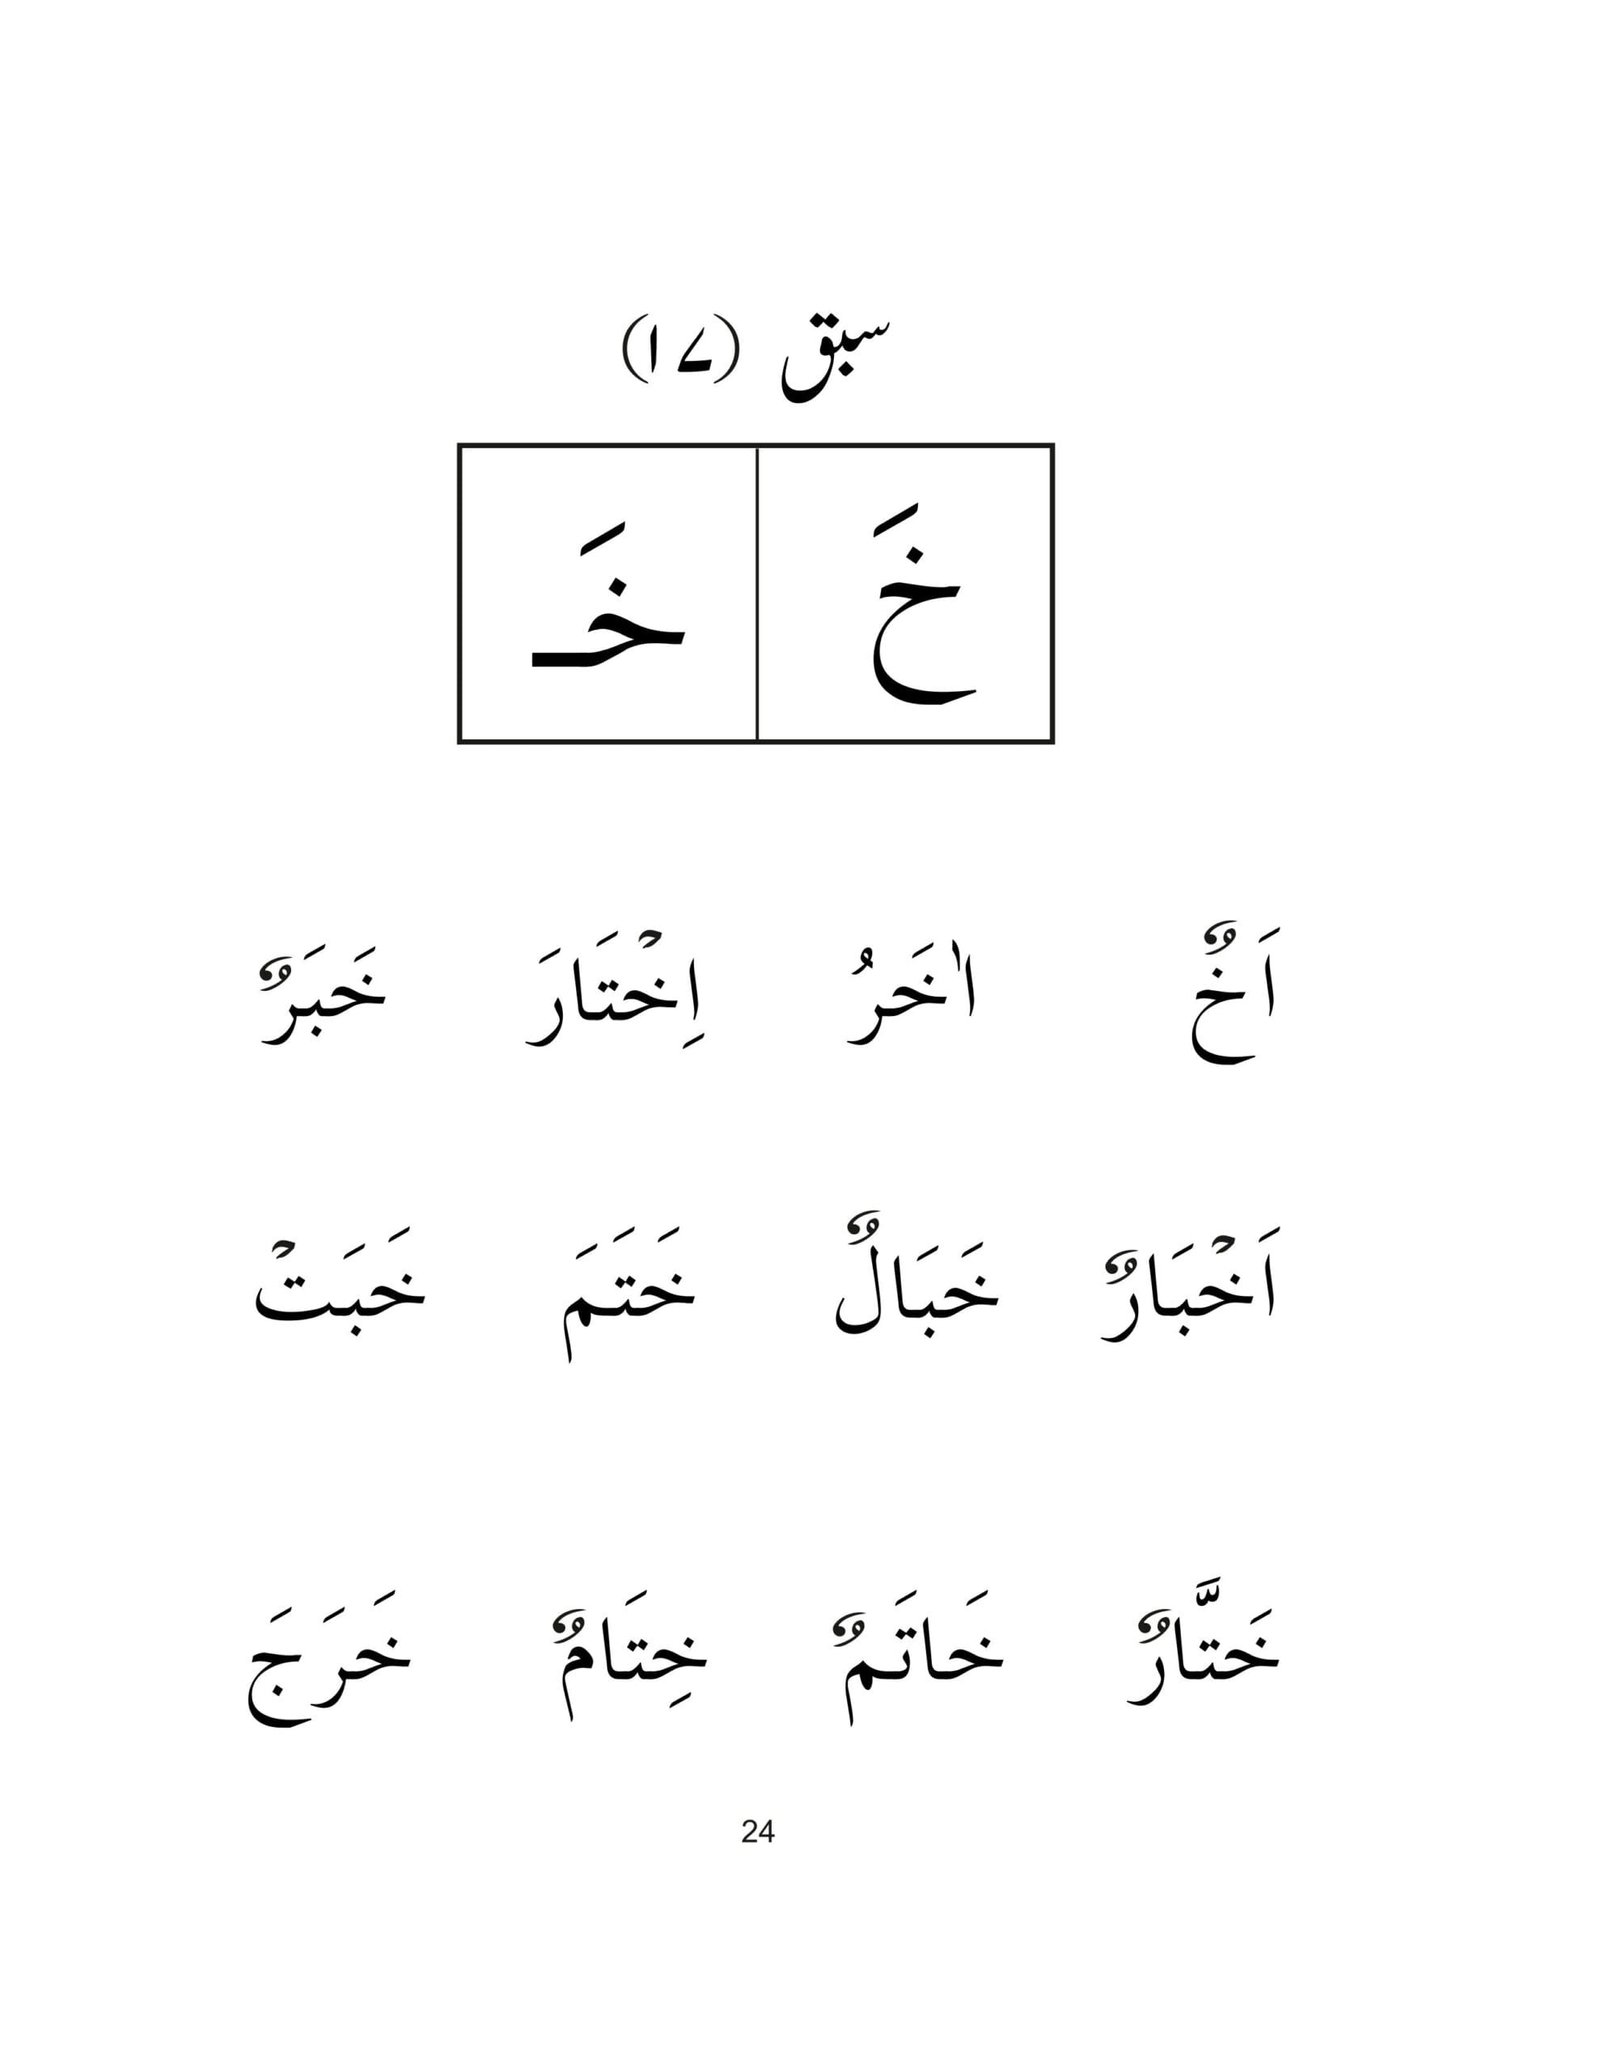 سبق (۱۷)
خَ خَـ
اَخٌ اٰخَرُ اِخْتَارَ خَبَرٌ
اَخْبَارٌ خَبَالٌ خَتَمَ خَبَتْ
خَتَّارٌ خَاتَمٌ خِتَامٌ خَرَجَ
24